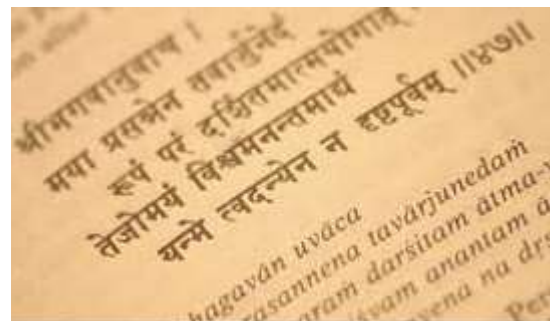 श्रीभगवानुवाच ।
मया प्रसन्नेन तवार्जुनेदं
रूपं परं दर्शितमात्मयोगात् ।
तेजोमयं विश्वमनन्तमाद्यं
यन्मे त्वदन्येन न दृष्टपूर्वम् ॥४७॥
bhagavān uvāca
prasannena tavārjunedaṁ
paraṁ darśitam ātma-
viśvam anantam
na